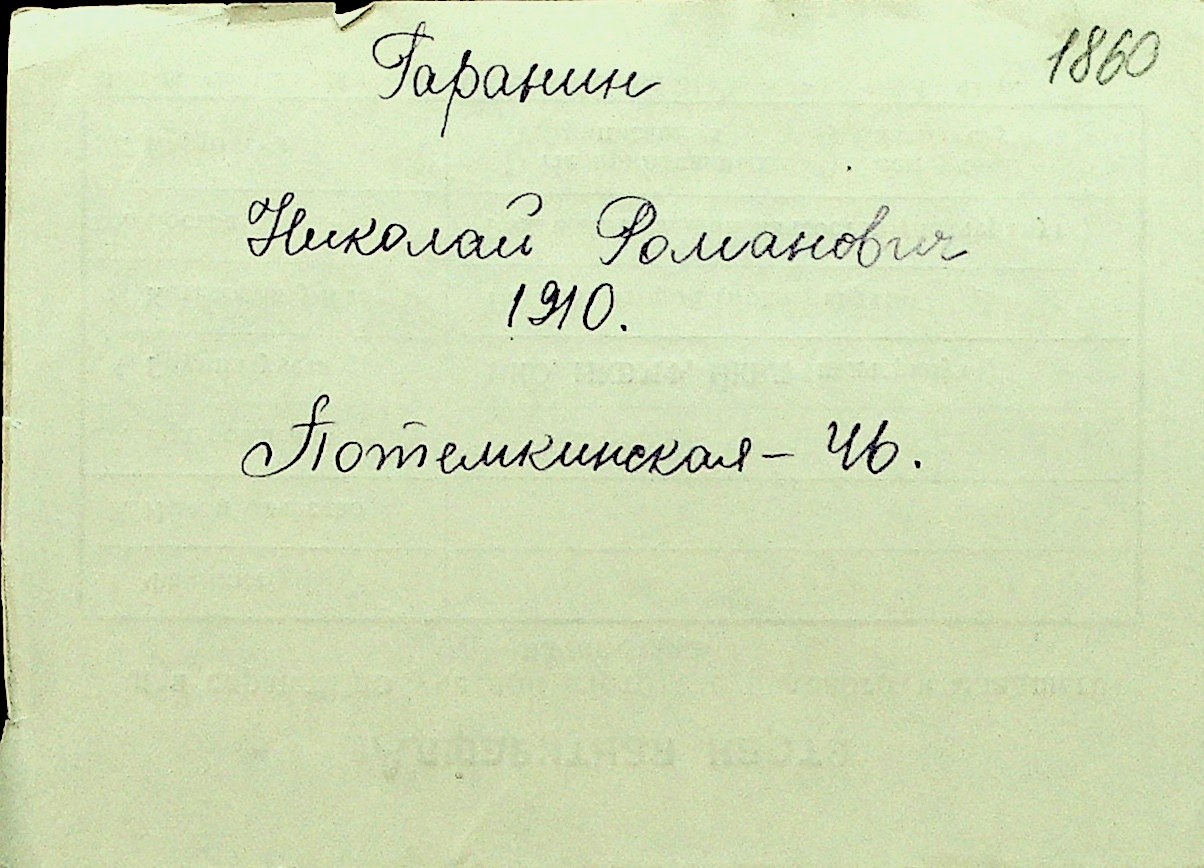 1860
Гаранин
Николай Романович
1910.
Потемкинская - 46.